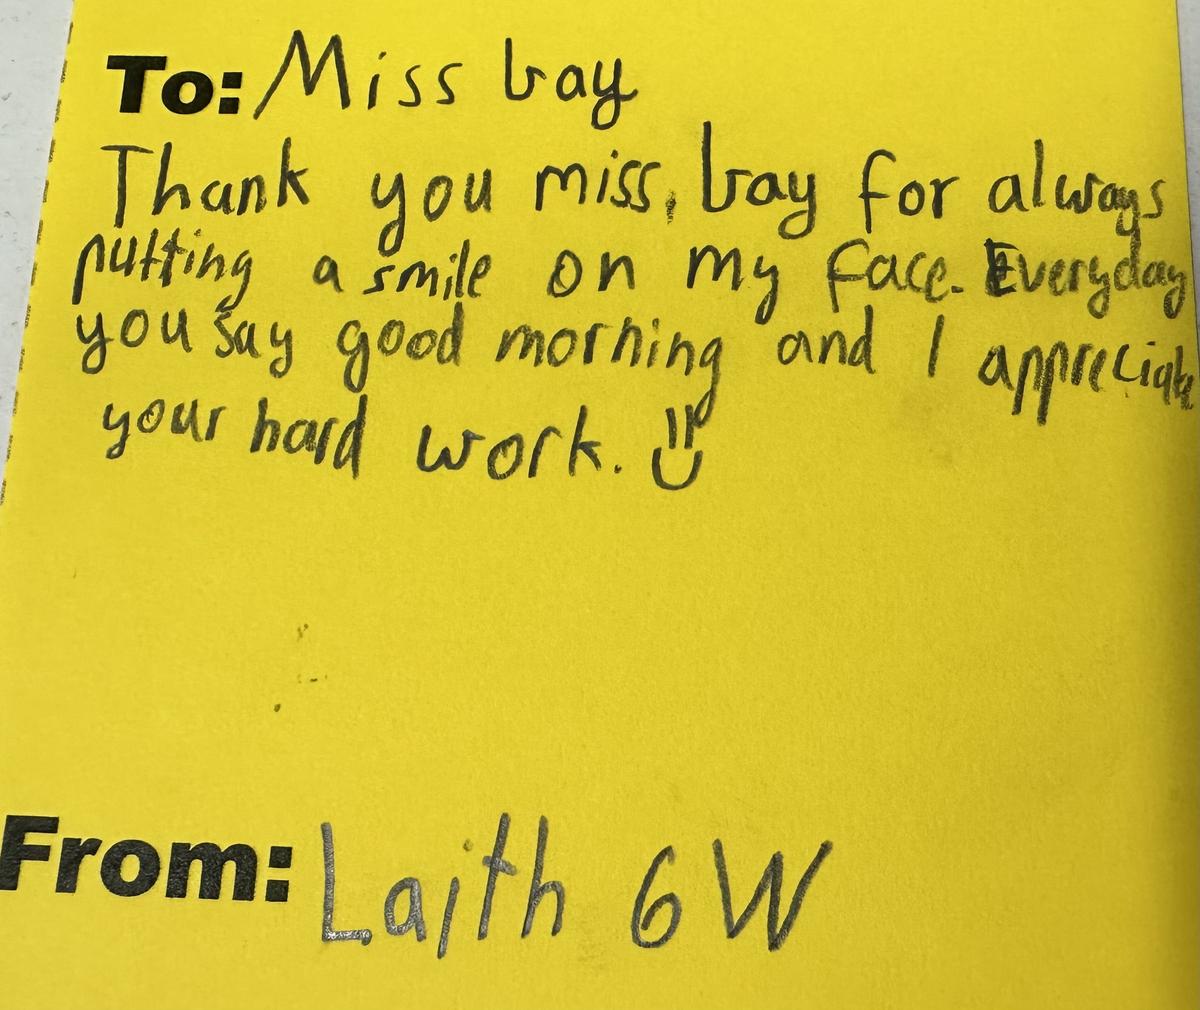 To: Miss bay
Thank you miss, bay for always
putting a smile on my face. Everyday
you say good morning and I appreciate
your hard work. :)
From: Laith 6W